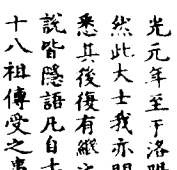 光元年至于洛陽
然此大士我亦聞
悉其後復有繼之
說皆隱語凡自七
十八祖傳受之事